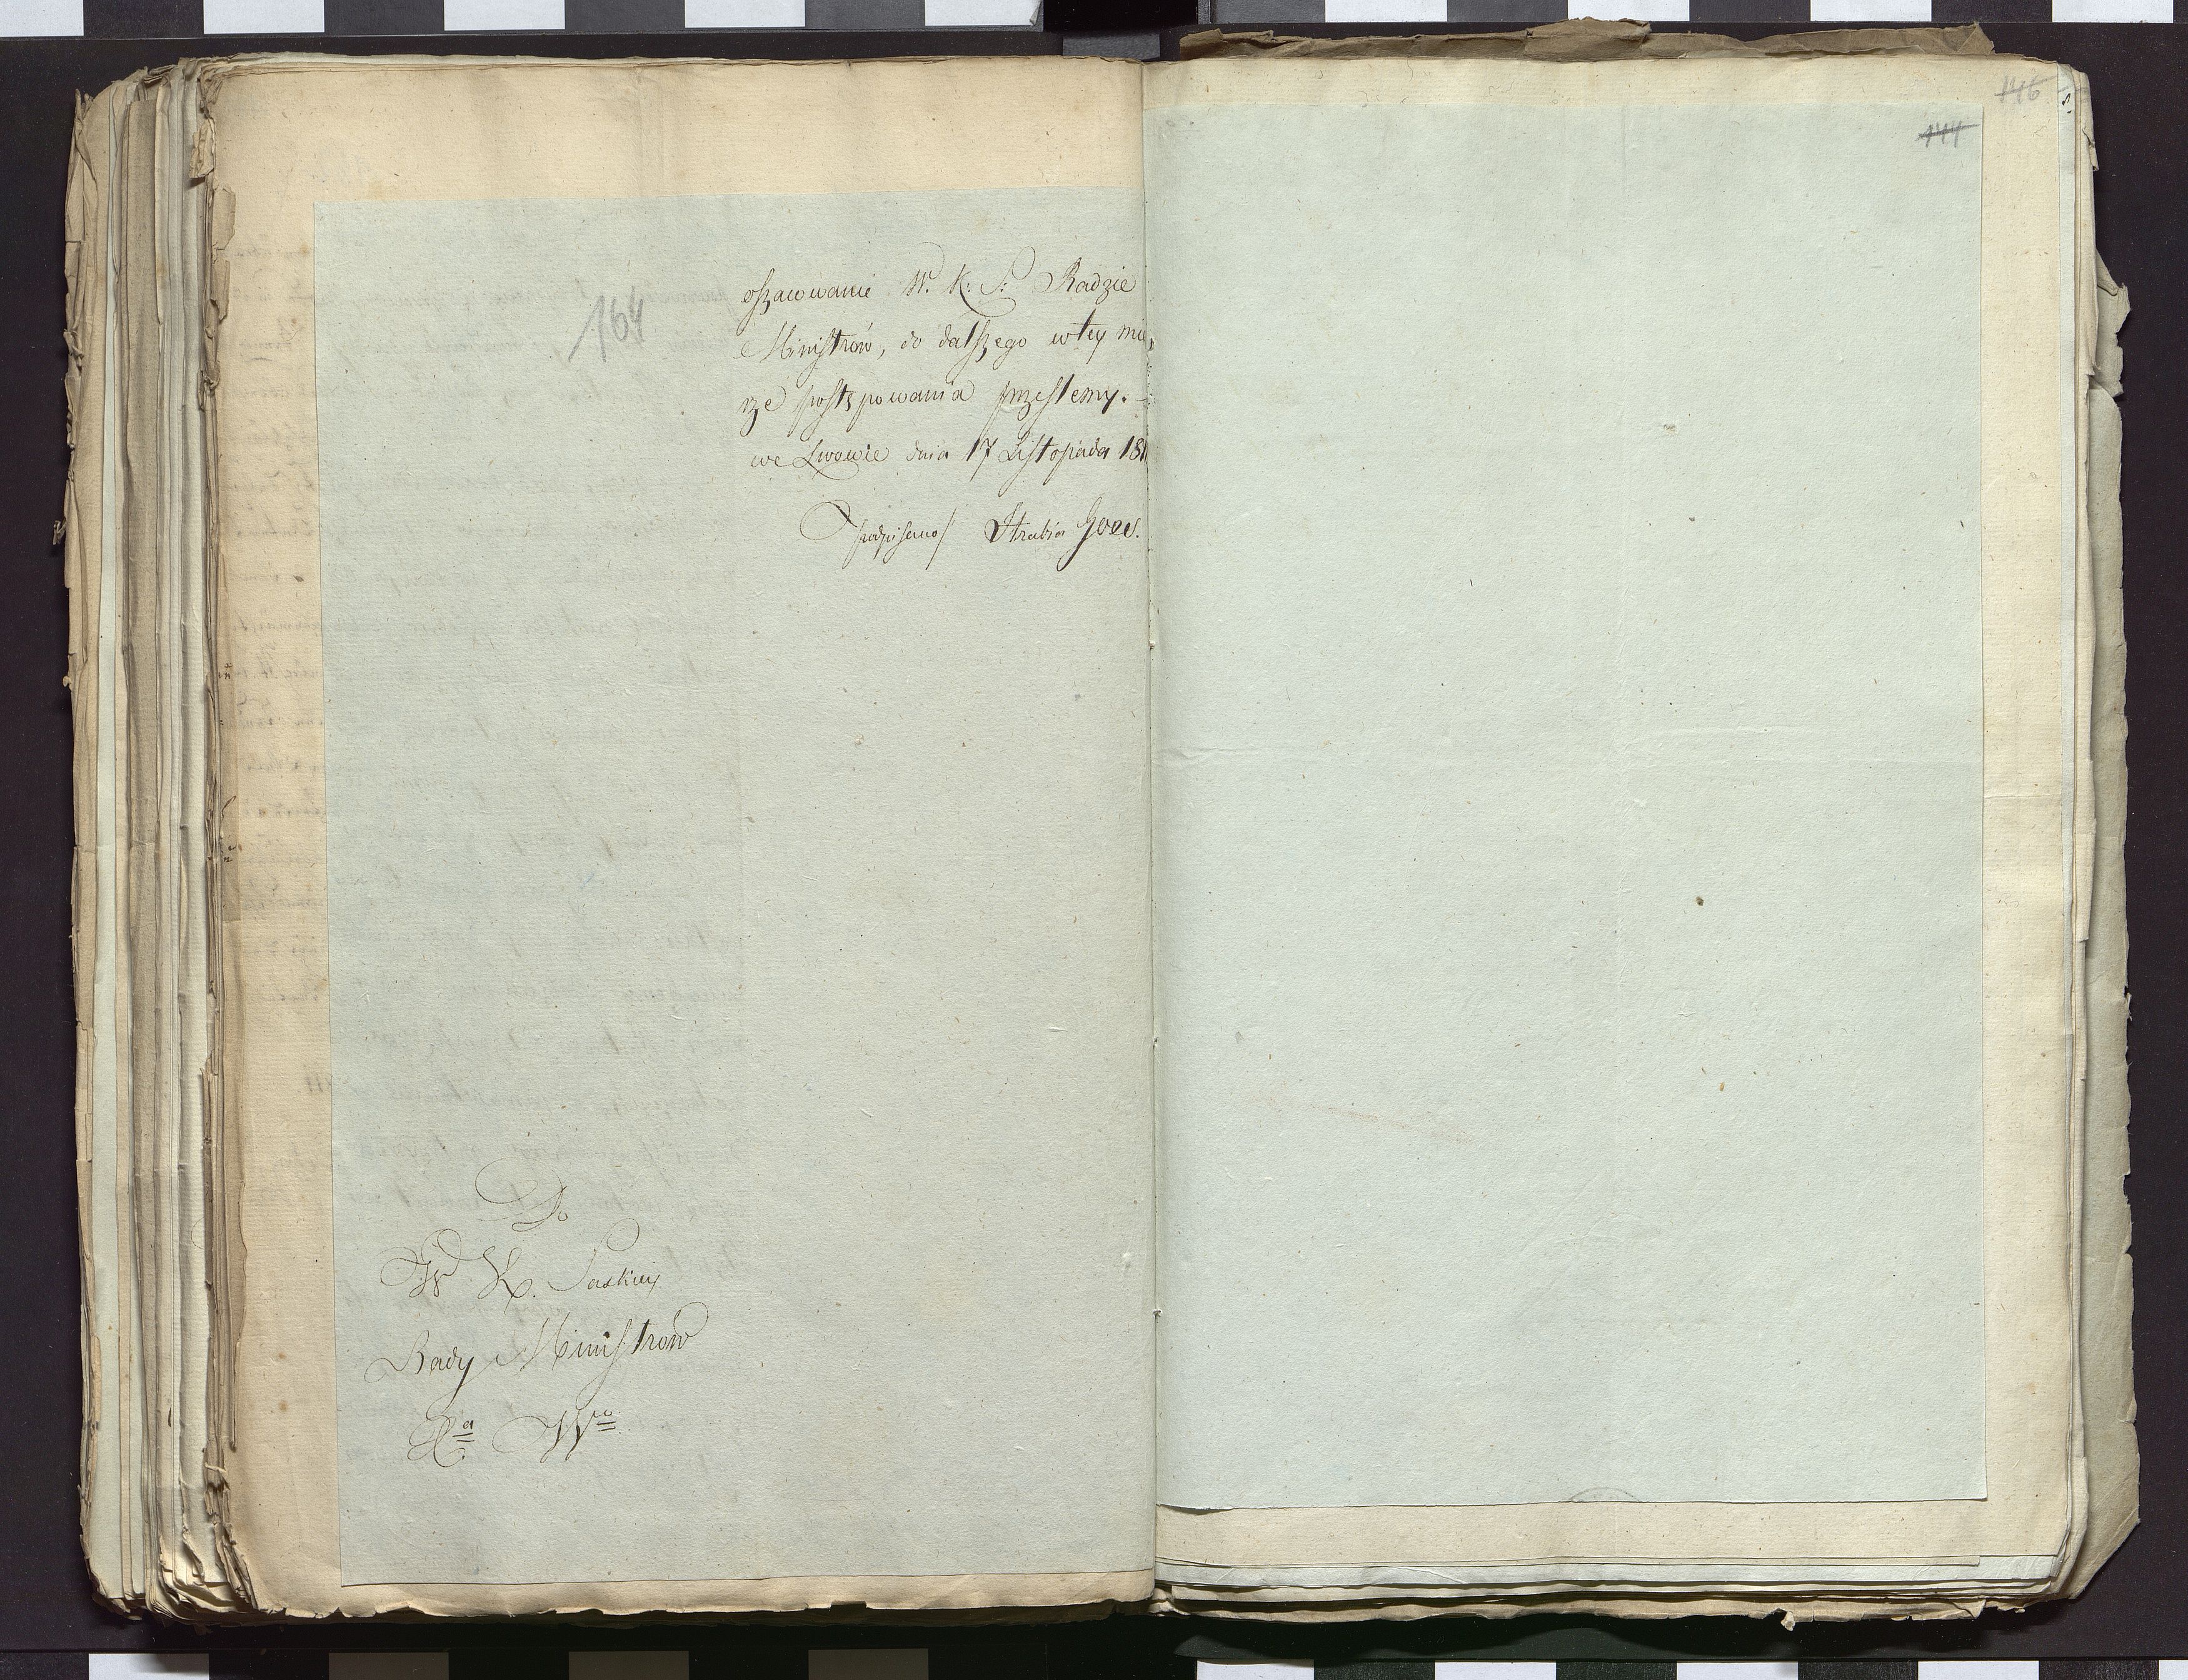 146
144
164
oszacowanie W. K: S: Radzie
Ministrów, do dalszego w tey mie,
rze postępowania przeslemy. —
we Lwowie dnia 17 Listopada 181
podpisano/ Hrabia Goes.
Do
W K. Saskiey
Rady Ministrow
Xa Wo